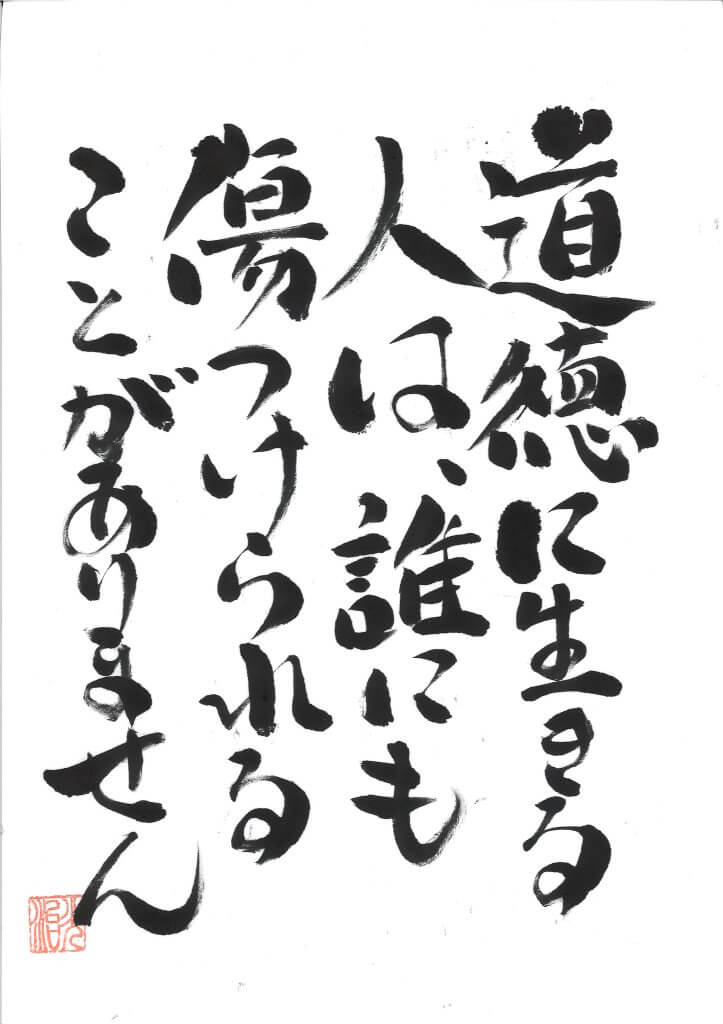 道徳に生きる
人は、誰にも
傷つけられる
ことがありません